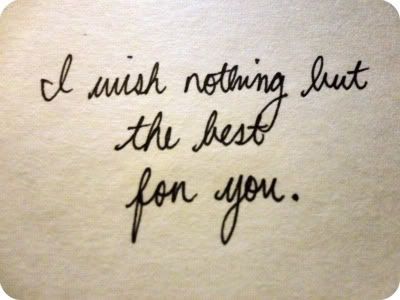 I wish nothing but
the best
for you.